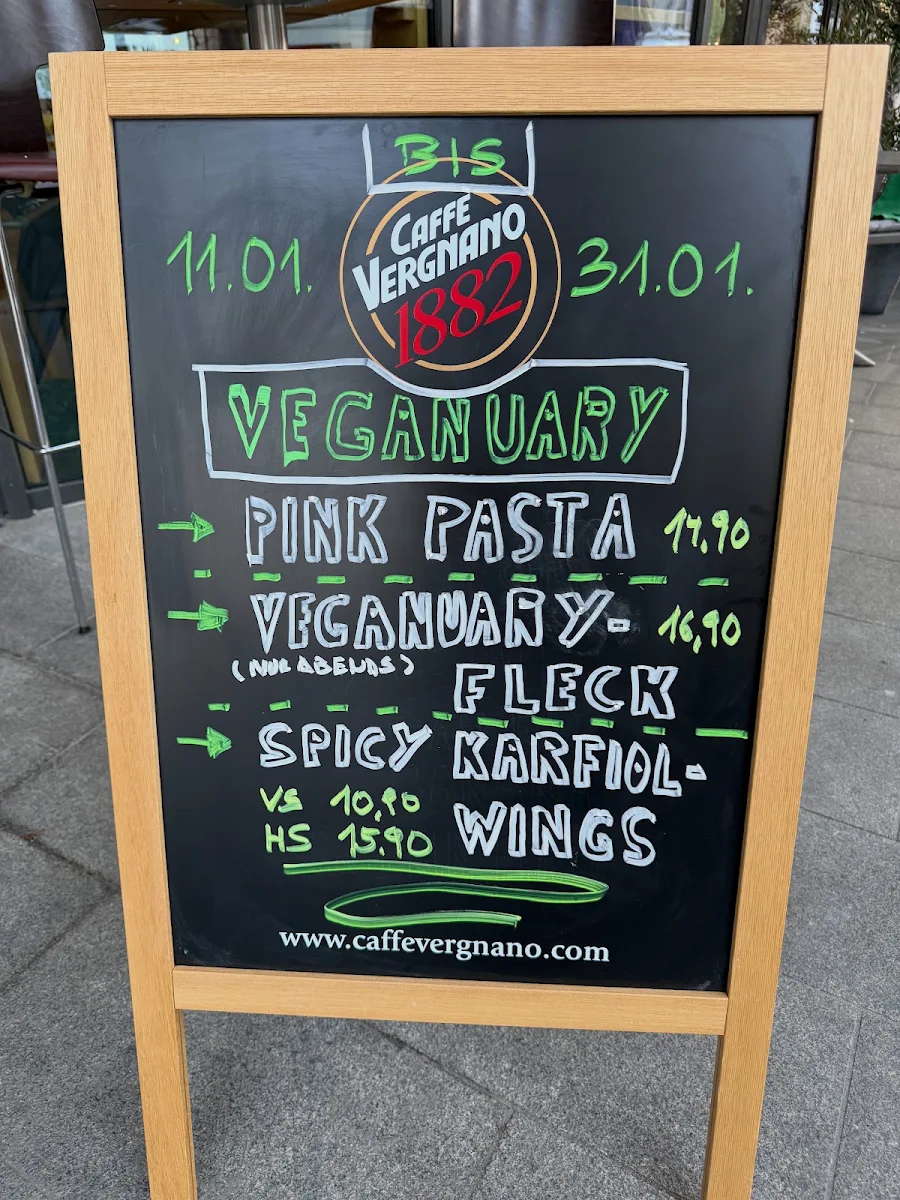 BIS
CAFFÈ
VERGNANO
1882
11.01. 31.01.
VEGANUARY
PINK PASTA 14,90
VEGANUARY- 16,90
(NUR ABENDS)
FLECK
SPICY KARFIOL-
VS 10,90
HS 15.90 WINGS
www.caffevergnano.com